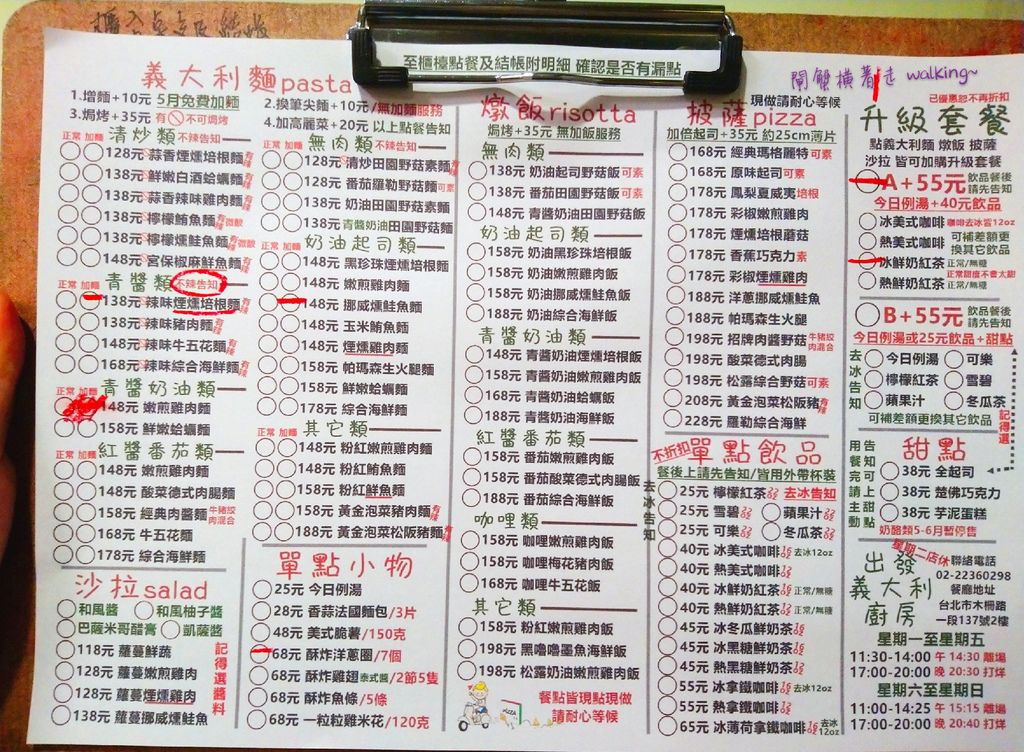 至櫃檯點餐及結帳附明細 確認是否有漏點
鬧蟹橫著走 walking~
義大利麵pasta
1.增麵+10元 5月免費加麵
2.換筆尖麵+10元/無加麵服務
3.焗烤+35元 有🚫不可焗烤
4.加高麗菜+20元 以上點餐告知
正常 加麵 清炒類 不辣告知
128元 蒜香煙燻培根麵 有辣
138元 鮮嫩白酒蛤蠣麵
138元 蒜香辣味雞肉麵 有辣
138元 檸檬鮪魚麵 微酸
138元 檸檬燻鮭魚麵 微酸
148元 宮保椒麻鮮魚麵 有辣
青醬類 不辣告知
正常 加麵
138元 辣味煙燻培根麵 有辣
138元 辣味豬肉麵 有辣
148元 辣味牛五花麵 有辣
168元 辣味綜合海鮮麵 有辣
青醬奶油類
正常 加麵
148元 嫩煎雞肉麵
158元 鮮嫩蛤蠣麵
紅醬番茄類
正常 加麵
148元 嫩煎雞肉麵
148元 酸菜德式肉腸麵
158元 經典肉醬麵 牛豬絞肉混合
168元 牛五花麵
178元 綜合海鮮麵
沙拉salad
和風醬 和風柚子醬
巴薩米哥醋膏 凱薩醬
118元 蘿蔓鮮蔬
128元 蘿蔓嫩煎雞肉
128元 蘿蔓煙燻雞肉
138元 蘿蔓挪威燻鮭魚
記得選醬料
正常 加麵 無肉類 不辣告知
128元 清炒田園野菇素麵 有辣
128元 番茄羅勒野菇麵 可素
138元 奶油田園野菇麵
138元 青醬奶油田園野菇麵
奶油起司類
正常 加麵
148元 黑珍珠煙燻培根麵
148元 嫩煎雞肉麵
148元 挪威燻鮭魚麵
148元 玉米鮪魚麵
148元 煙燻雞肉麵
158元 帕瑪森生火腿麵
158元 鮮嫩蛤蠣麵
178元 綜合海鮮麵
其它類
正常 加麵
148元 粉紅嫩煎雞肉麵
148元 粉紅鮪魚麵
158元 粉紅鮮魚麵
158元 黃金泡菜豬肉麵 有辣
188元 黃金泡菜松阪豬麵 有辣
單點小物
25元 今日例湯
28元 香蒜法國麵包/3片
48元 美式脆薯/150克
68元 酥炸洋蔥圈/7個
68元 酥炸雞翅 泰式醬/2節5隻
68元 酥炸魚條/5條
68元 一粒粒雞米花/120克
燉飯risotta
焗烤+35元 無加飯服務
無肉類
138元 奶油起司野菇飯 可素
138元 番茄田園野菇飯 可素
148元 青醬奶油田園野菇飯
奶油起司類
158元 奶油黑珍珠培根飯
158元 奶油嫩煎雞肉飯
158元 奶油挪威燻鮭魚飯
188元 奶油綜合海鮮飯
青醬奶油類
148元 青醬奶油煙燻培根飯
158元 青醬奶油嫩煎雞肉飯
168元 青醬奶油蛤蠣飯
188元 青醬奶油海鮮飯
紅醬番茄類
158元 番茄嫩煎雞肉飯
158元 番茄酸菜德式肉腸飯
188元 番茄綜合海鮮飯
咖哩類
158元 咖哩嫩煎雞肉飯
158元 咖哩梅花豬肉飯
168元 咖哩牛五花飯
其它類
158元 粉紅嫩煎雞肉飯
198元 黑嚕嚕墨魚海鮮飯
198元 松露奶油嫩煎雞肉飯
餐點皆現點現做
請耐心等候
披薩pizza
現做請耐心等候
加倍起司+35元 約25cm薄片
168元 經典瑪格麗特 可素
168元 原味起司 可素
178元 鳳梨夏威夷 培根
178元 彩椒嫩煎雞肉
178元 煙燻培根蘑菇
178元 香蕉巧克力 素
178元 彩椒煙燻雞肉
188元 洋蔥挪威燻鮭魚
188元 帕瑪森生火腿
198元 招牌肉醬野菇 牛豬絞肉混合
198元 酸菜德式肉腸
198元 松露綜合野菇 可素
208元 黃金泡菜松阪豬 有辣
228元 羅勒綜合海鮮
不折扣 單點飲品
餐後上請先告知/皆用外帶杯裝
去冰告知
25元 檸檬紅茶 去冰告知
25元 雪碧 蘋果汁
25元 可樂 冬瓜茶
40元 冰美式咖啡 去冰12oz
40元 熱美式咖啡
40元 冰鮮奶紅茶 正常/無糖
40元 熱鮮奶紅茶 正常/無糖
45元 冰冬瓜鮮奶茶
45元 冰黑糖鮮奶茶
45元 熱黑糖鮮奶茶
55元 冰拿鐵咖啡 去冰12oz
55元 熱拿鐵咖啡
65元 冰薄荷拿鐵咖啡 去冰12oz
已優惠恕不再折扣
升級套餐
點義大利麵 燉飯 披薩
沙拉 皆可加購升級套餐
A+55元 飲品餐後請先告知
今日例湯+40元飲品
冰美式咖啡 咖啡去冰皆12oz
熱美式咖啡 可補差額更換其它飲品
冰鮮奶紅茶 正常/無糖 正常甜度不會太甜
熱鮮奶紅茶 正常/無糖
B+55元 飲品餐後請先告知
今日例湯或25元飲品+甜點
去冰告知
今日例湯 可樂
檸檬紅茶 雪碧
蘋果汁 冬瓜茶
可補差額更換其它飲品
記得選
甜點
用餐完請主動告知可上甜點
38元 全起司
38元 楚佛巧克力
38元 芋泥蛋糕
奶酪類5-6月暫停售
星期二店休
出發義大利廚房
聯絡電話
02-22360298
餐廳地址
台北市木柵路
一段137號2樓
星期一至星期五
11:30-14:00 午 14:30 離場
17:00-20:00 晚 20:30 打烊
星期六至星期日
11:00-14:25 午 15:15 離場
17:00-20:00 晚 20:40 打烊